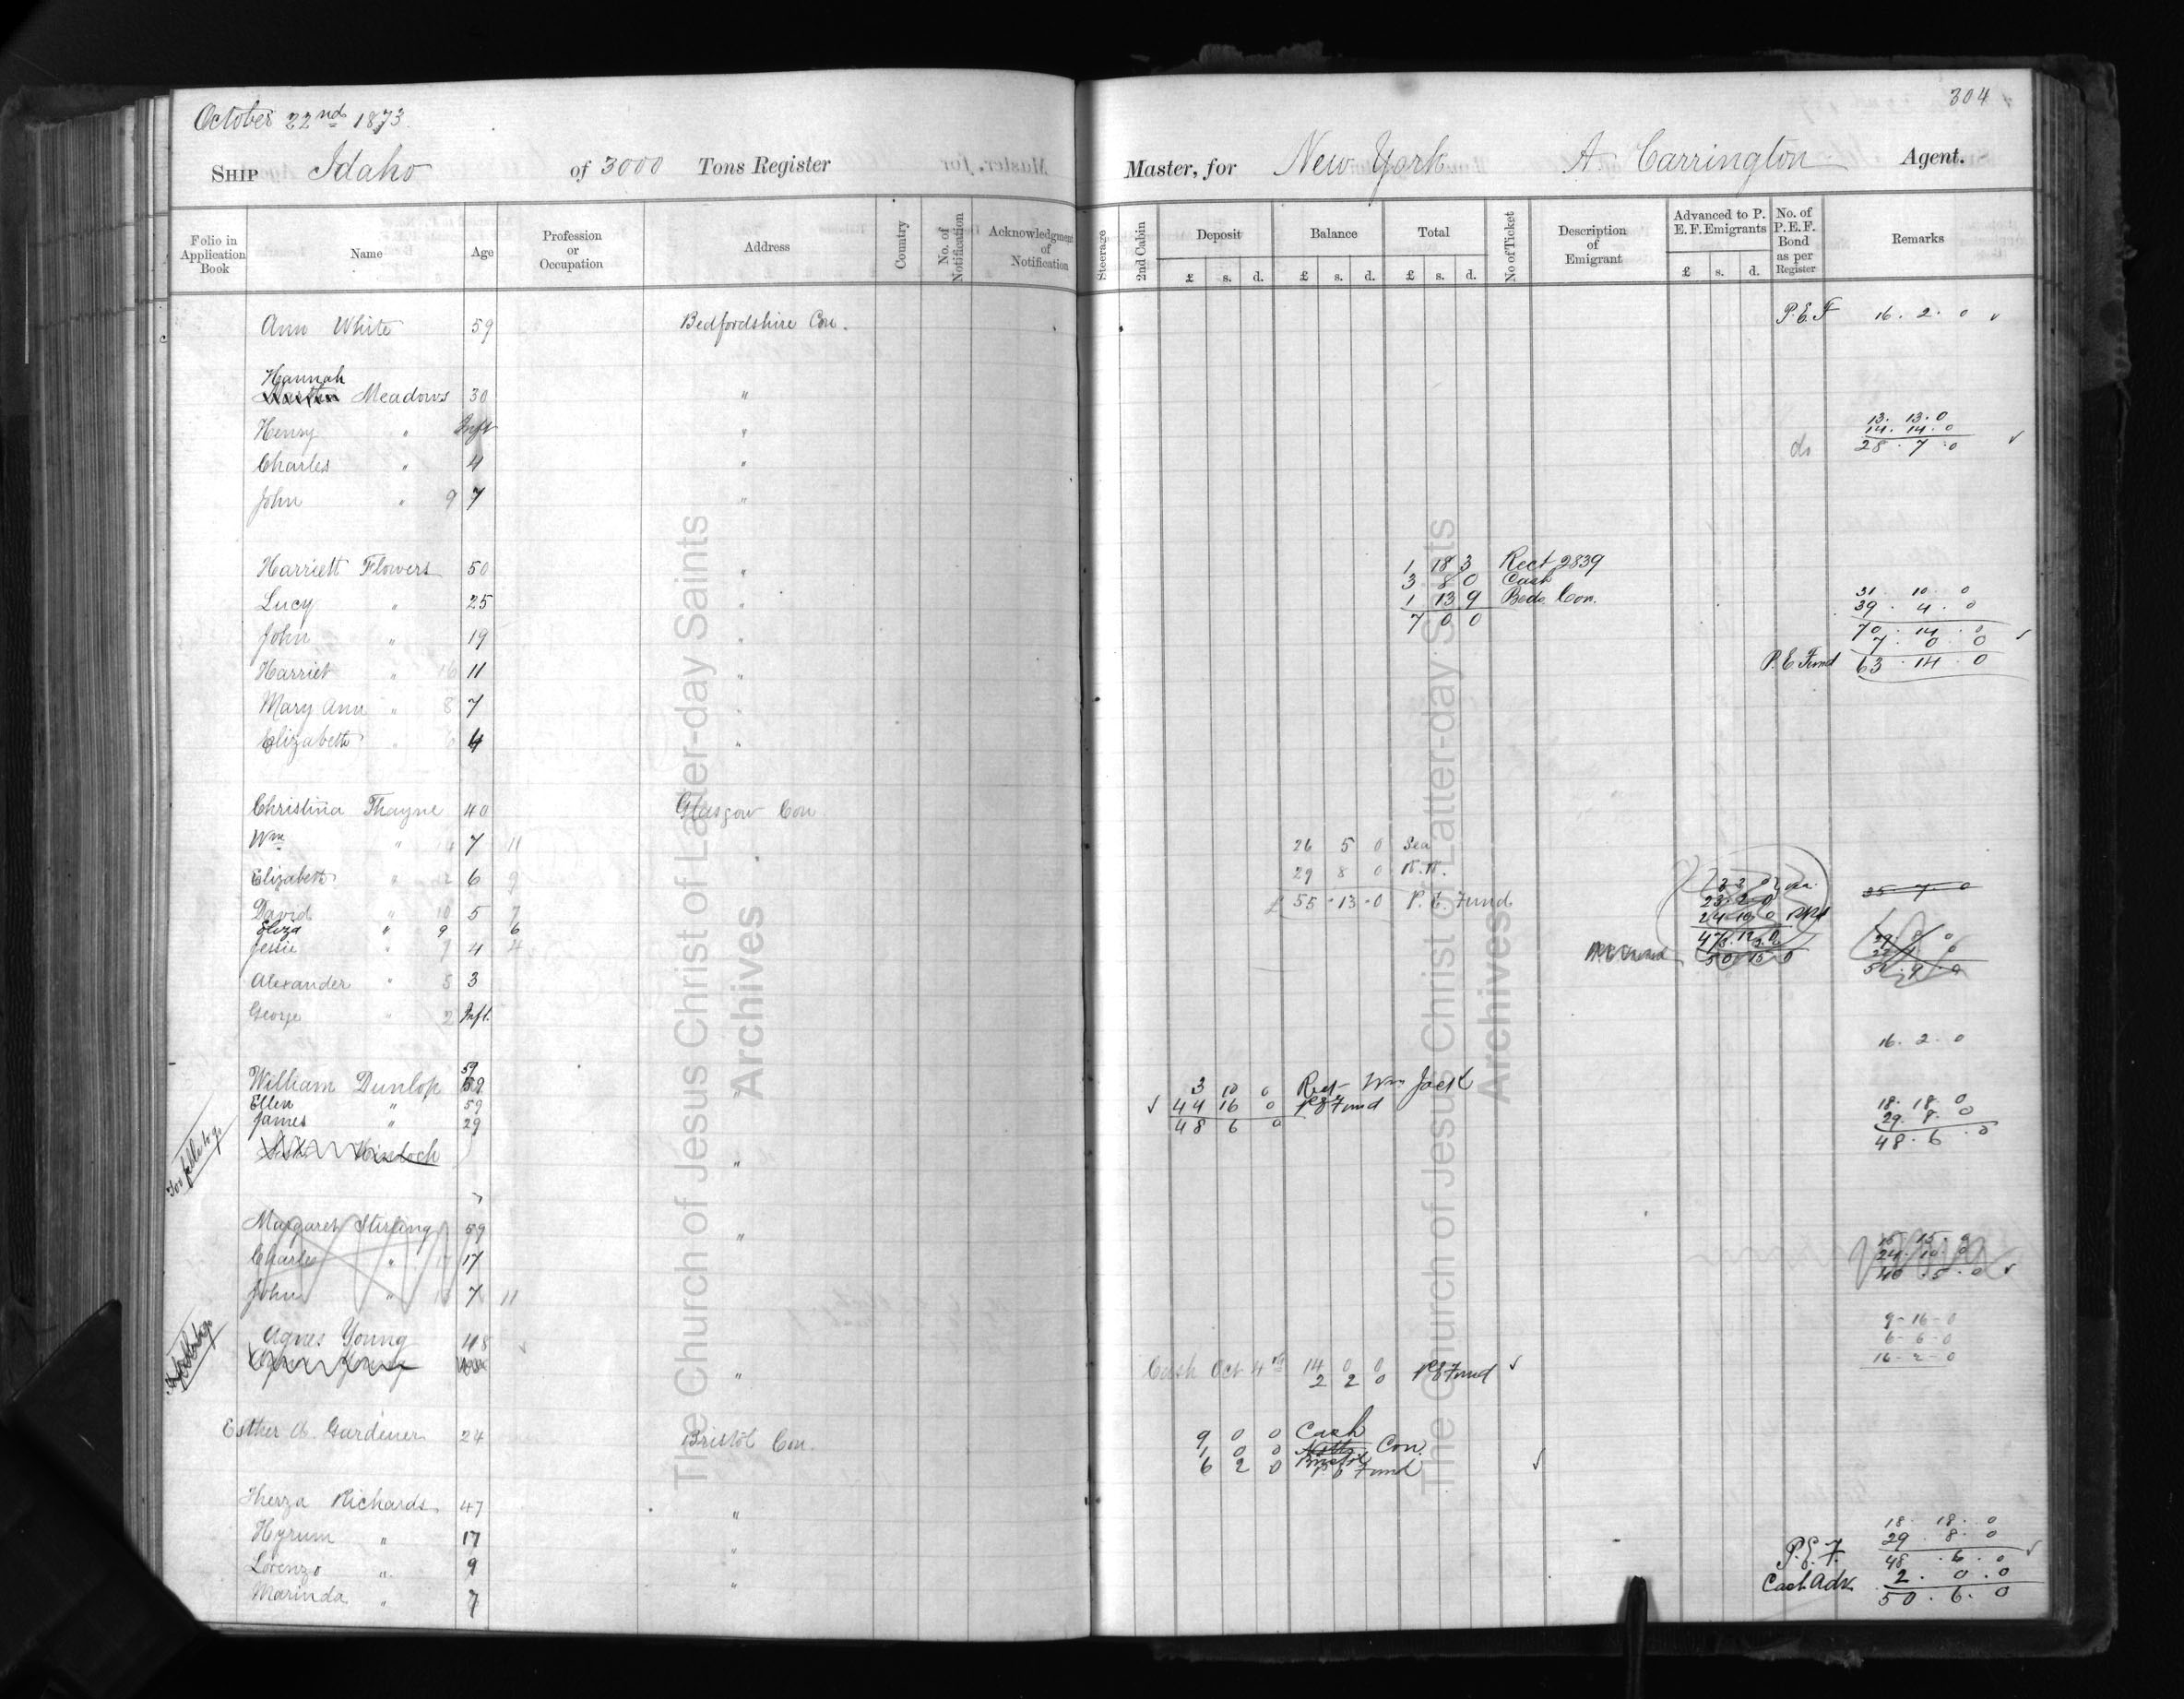 304
October 22nd 1873.
SHIP Idaho of 3000 Tons Register Master, for New York A. Carrington Agent.
Folio in Application Book Name Age Profession or Occupation Address Country No. of Notification Acknowledgment of Notification Steerage 2nd Cabin Deposit Balance Total No of Ticket Description of Emigrant Advanced to P. E. F. Emigrants No. of P.E.F. Bond as per Register Remarks
£ s. d. £ s. d. £ s. d. £ s. d.
Ann White 59 Bedfordshire Con. P.E.F 16. 2. 0 ✓
Hannah
Meadows 30 "
Henry " Inft " 13. 13. 0
14. 14. 0
do 28. 7. 0 ✓
Charles " 4 "
John " 9 7 "
Harriett Flowers 50 " 1 18 3 Rect 2839
3 8 0 Cash
Lucy " 25 " 1 13 9 Beds. Con. 31. 10. 0
7 0 0 39. 4. 0
John " 19 " 70. 14. 0 ✓
7. 0 0
Harriet " 16 11 " P.E. Fund 63. 14. 0
Mary Ann " 8 7 "
Elizabeth " 6 4 "
Christina Thayne 40 Glasgow Con
Wm " 14 7 11 26 5 0 Sea
Elizabeth " 12 6 9 29 8 0 R.R.
David " 10 5 7 £ 55. 13. 0 P. E. Fund 25 7 0
Eliza " 9 6
Jessie " 7 4 4
Alexander " 5 3
George " 2 Inft.
16. 2. 0
59
William Dunlop " 3 10 0 Rect Wm Jack
Ellen " 59 ✓ 44 16 0 P E Fund 18. 18. 0
James " 29 48 6 0 29. 8. 0
Kinloch " 48. 6. 0
Margaret Stirling 59 " 15. 15. 0
Charles " 17 17 24. 10. 0
40. 5. 0 ✓
John " 7 11
9-16-0
Agnes Young 48 6-6-0
" Cash Oct 4th 14 0 0 16-2-0
2 2 0 P E Fund ✓
Esther A. Gardener 24 Bristol Con. 9 0 0 Cash
1 0 0 Bristol Con.
6 2 0 P E Fund ✓
Therza Richards 47 "
Hyrum " 17 " 18. 18. 0
29. 8. 0
Lorenzo " 9 " P.E.F. 48. 6. 0 ✓
Marinda " 7 Cash Adv. 2. 0. 0
50. 6. 0
The Church of Jesus Christ of Latter-day Saints
Archives
The Church of Jesus Christ of Latter-day Saints
Archives